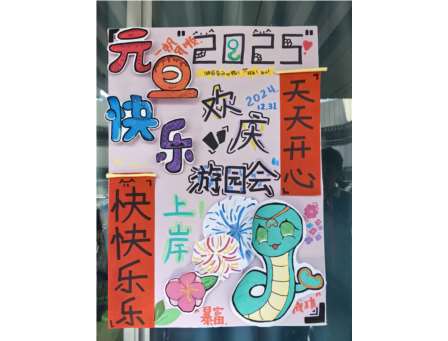 元旦
快乐
"2025"
2024.
12.31
欢庆
游园会"
天天开心
快快乐乐
上岸
"暴富"